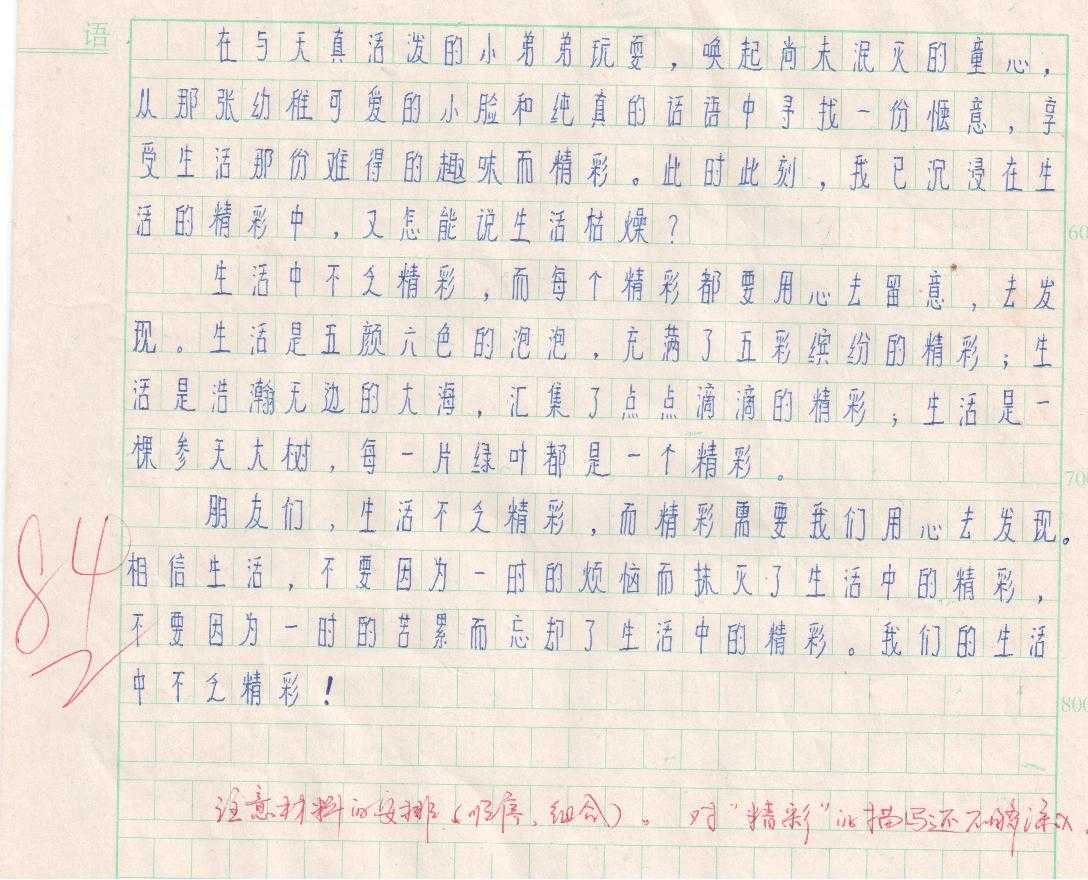 语
在与天真活泼的小弟弟玩耍，唤起尚未泯灭的童心，
从那张幼稚可爱的小脸和纯真的话语中寻找一份惬意，享
受生活那份难得的趣味而精彩。此时此刻，我已沉浸在生
活的精彩中，又怎能说生活枯燥？
60
生活中不乏精彩，而每个精彩都要用心去留意，去发
现。生活是五颜六色的泡泡，充满了五彩缤纷的精彩；生
活是浩瀚无边的大海，汇集了点点滴滴的精彩；生活是一
棵参天大树，每一片绿叶都是一个精彩。
700
朋友们，生活不乏精彩，而精彩需要我们用心去发现。
相信生活，不要因为一时的烦恼而抹灭了生活中的精彩，
不要因为一时的苦累而忘却了生活中的精彩。我们的生活
中不乏精彩！
800
84
注意材料的安排（顺序、组合）。对“精彩”的描写还不够